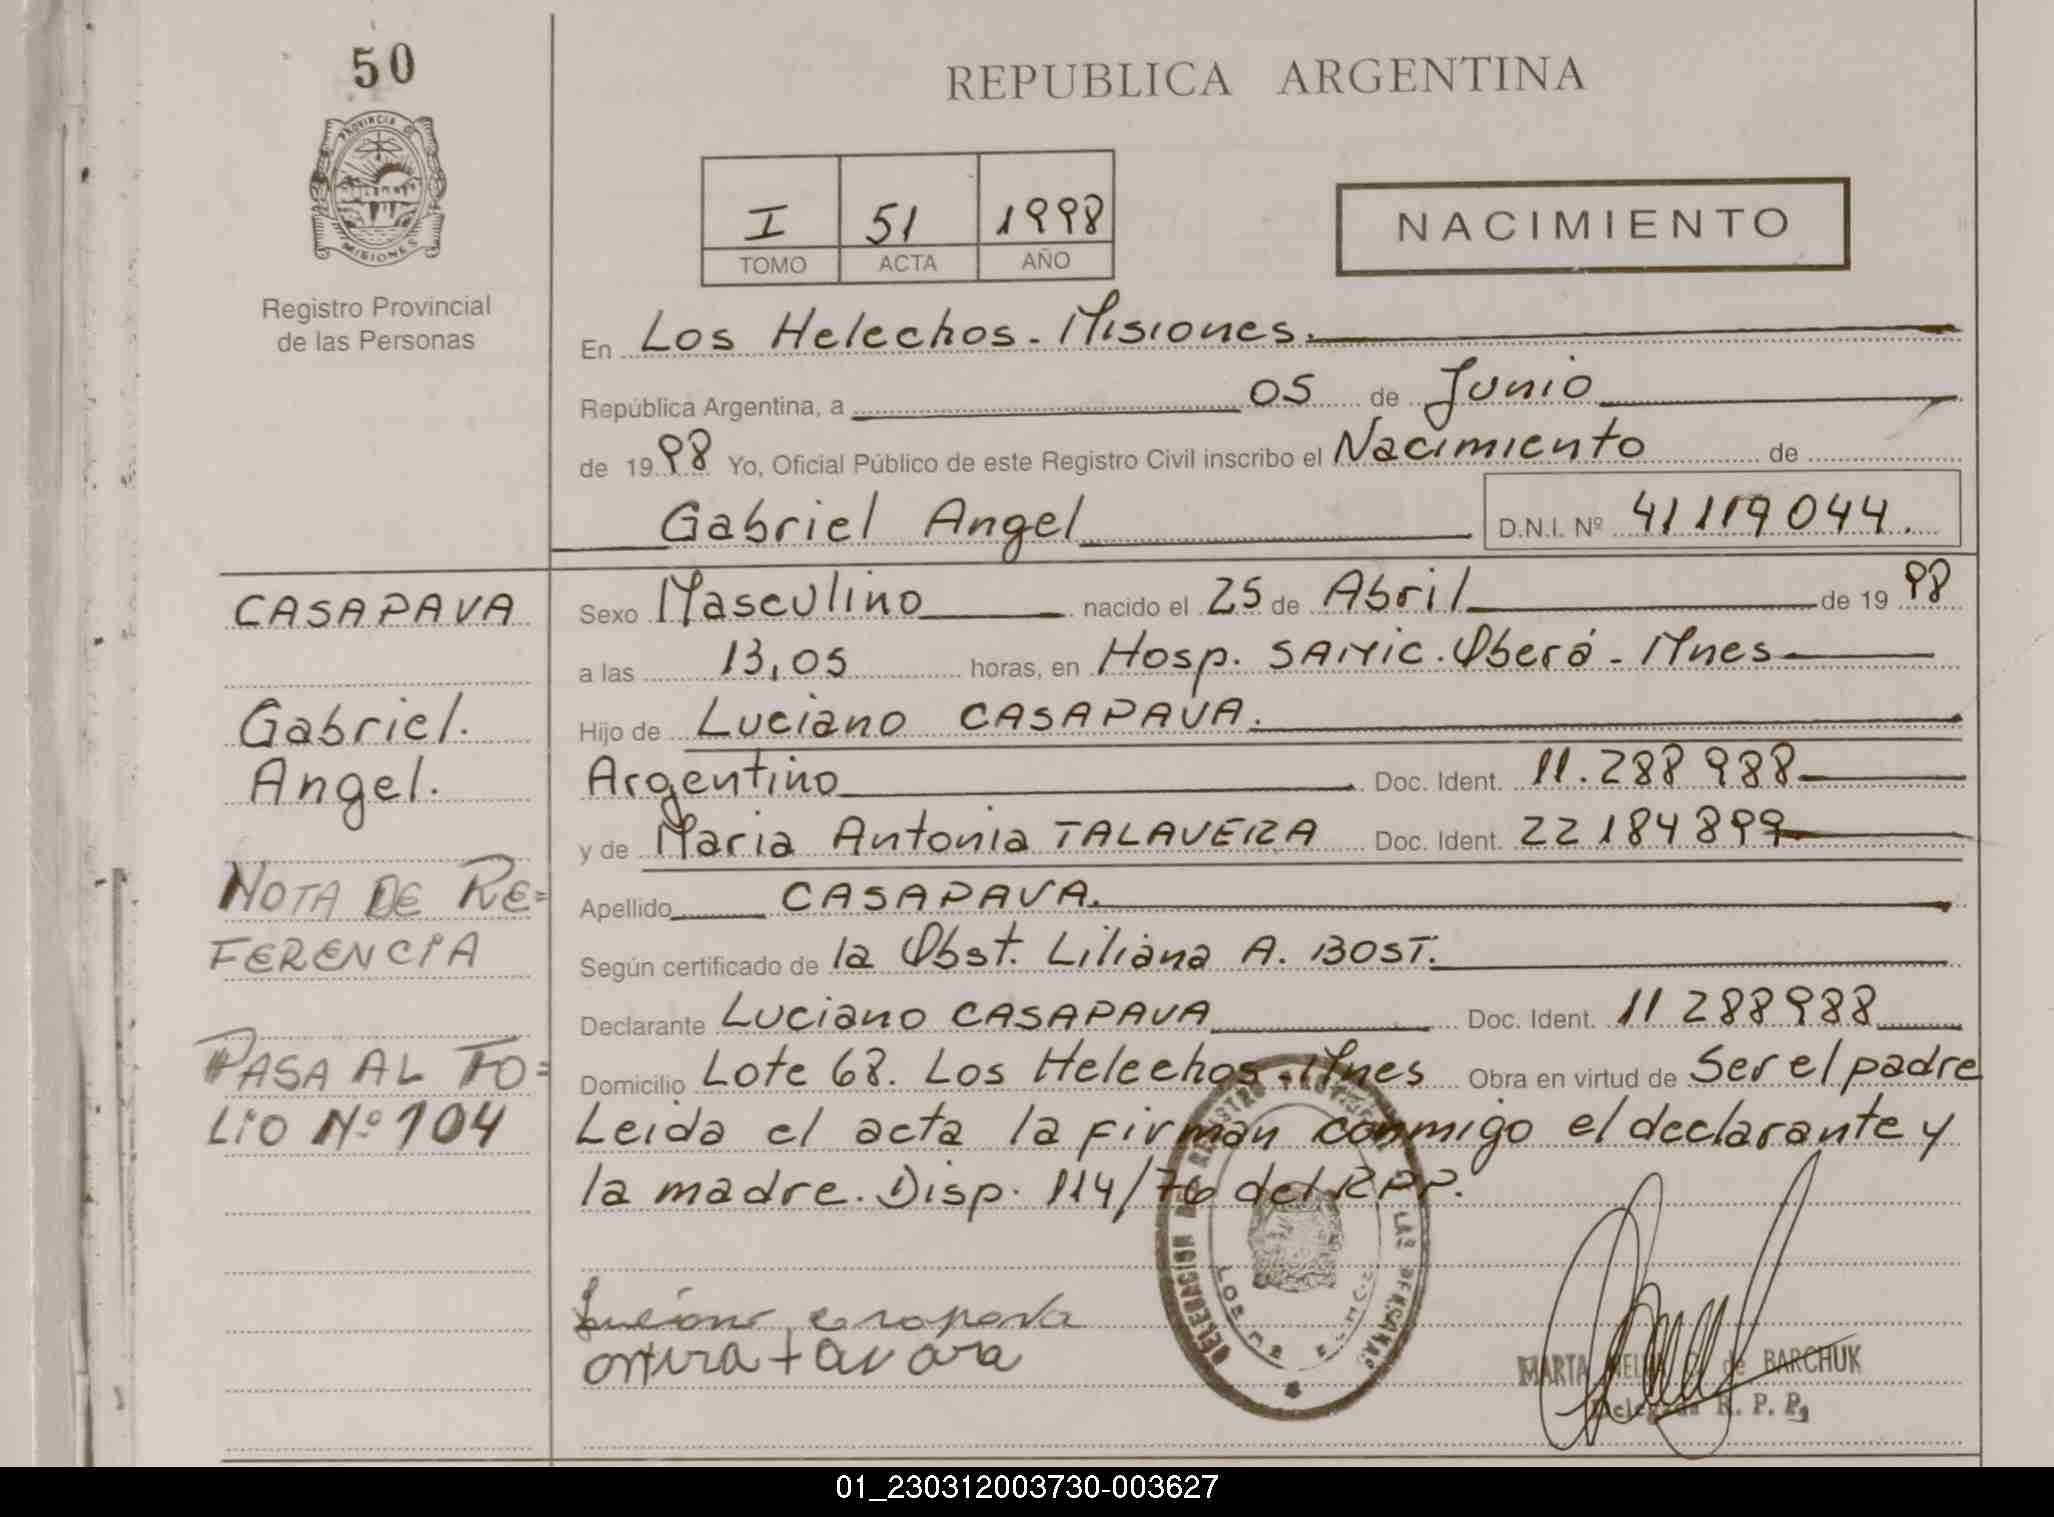 50
REPUBLICA ARGENTINA
PROVINCIA DE
MISIONES
I 51 1998
TOMO ACTA AÑO
NACIMIENTO
Registro Provincial
de las Personas
En Los Helechos - Misiones.
República Argentina, a 05 de Junio
de 1998 Yo, Oficial Público de este Registro Civil inscribo el Nacimiento de
Gabriel Angel D.N.I. Nº 41119044.
CASAPAVA
Gabriel.
Angel.
NOTA DE RE=
FERENCIA
PASA AL FO=
LIO Nº 104
Sexo Masculino nacido el 25 de Abril de 1998
a las 13,05 horas, en Hosp. SAMIC. Oberá - Mnes
Hijo de Luciano CASAPAVA.
Argentino Doc. Ident. 11.288 988
y de Maria Antonia TALAVERA Doc. Ident. 22 184 899
Apellido CASAPAVA.
Según certificado de la Obst. Liliana A. BOST.
Declarante Luciano CASAPAVA Doc. Ident. 11 288988
Domicilio Lote 68. Los Helechos - Mnes Obra en virtud de Ser el padre
Leida el acta la firman conmigo el declarante y
la madre. Disp. 114/76 del RPP.
DELEGACION DEL REGISTRO PROVINCIAL DE LAS PERSONAS
LOS HELECHOS
MARTA de BARCHUK
Delegada R. P. P.
01_230312003730-003627